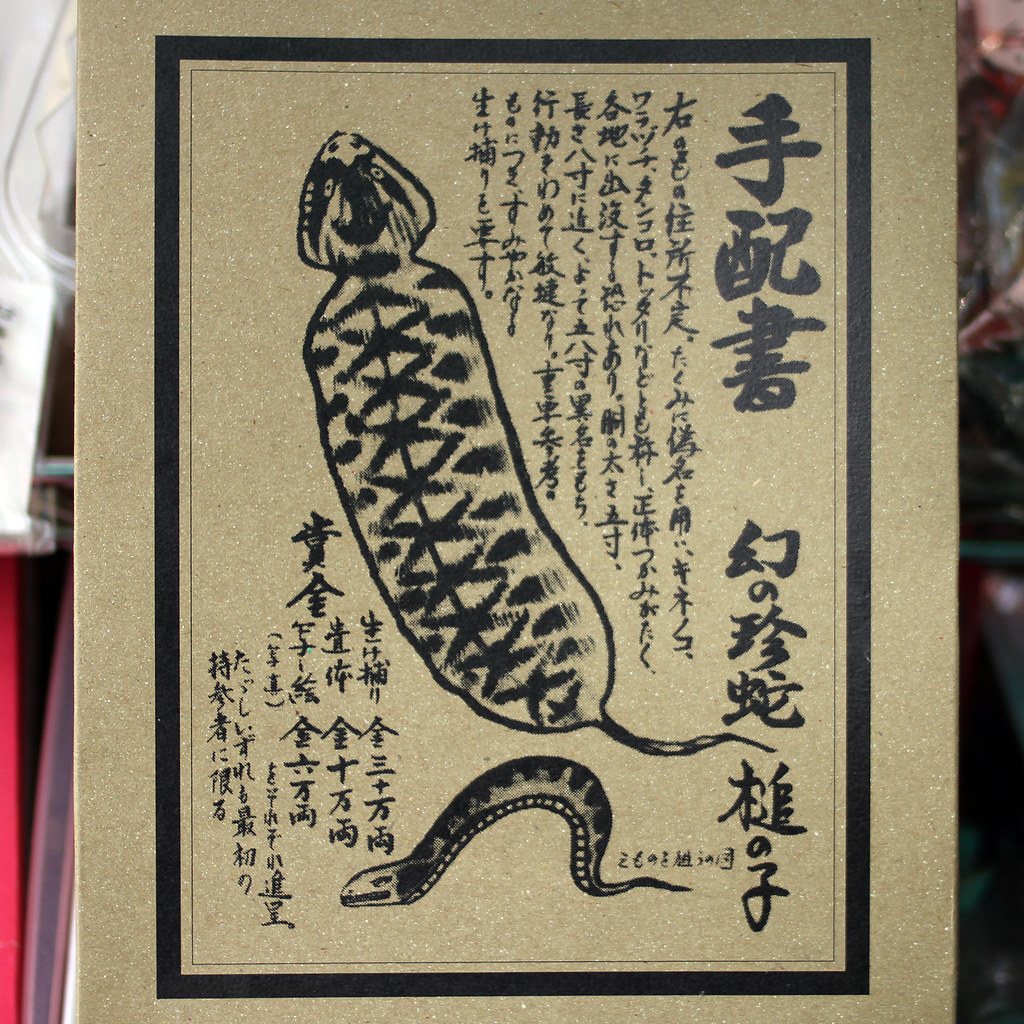 手配書
幻の珍蛇
槌の子
右のもの住所不定。たくみに偽名を用い、キネノコ、
ワラヅチ、タンコロ、トックリなどとも称し、正体つかみがたく、
各地に出没する恐れあり。胴の太さ五寸、
長さ八寸に近く、よって五八寸の異名をもち、
行動きわめて敏捷なり。重要参考
ものにつき、すみやかなる
生け捕りを要す。
賞金
生け捕り 金三十万両
遺体 金十万両
写し絵 金六万両
(写真) をそれぞれ進呈。
たゞしいずれも最初の
持参者に限る
えものを狙うの図